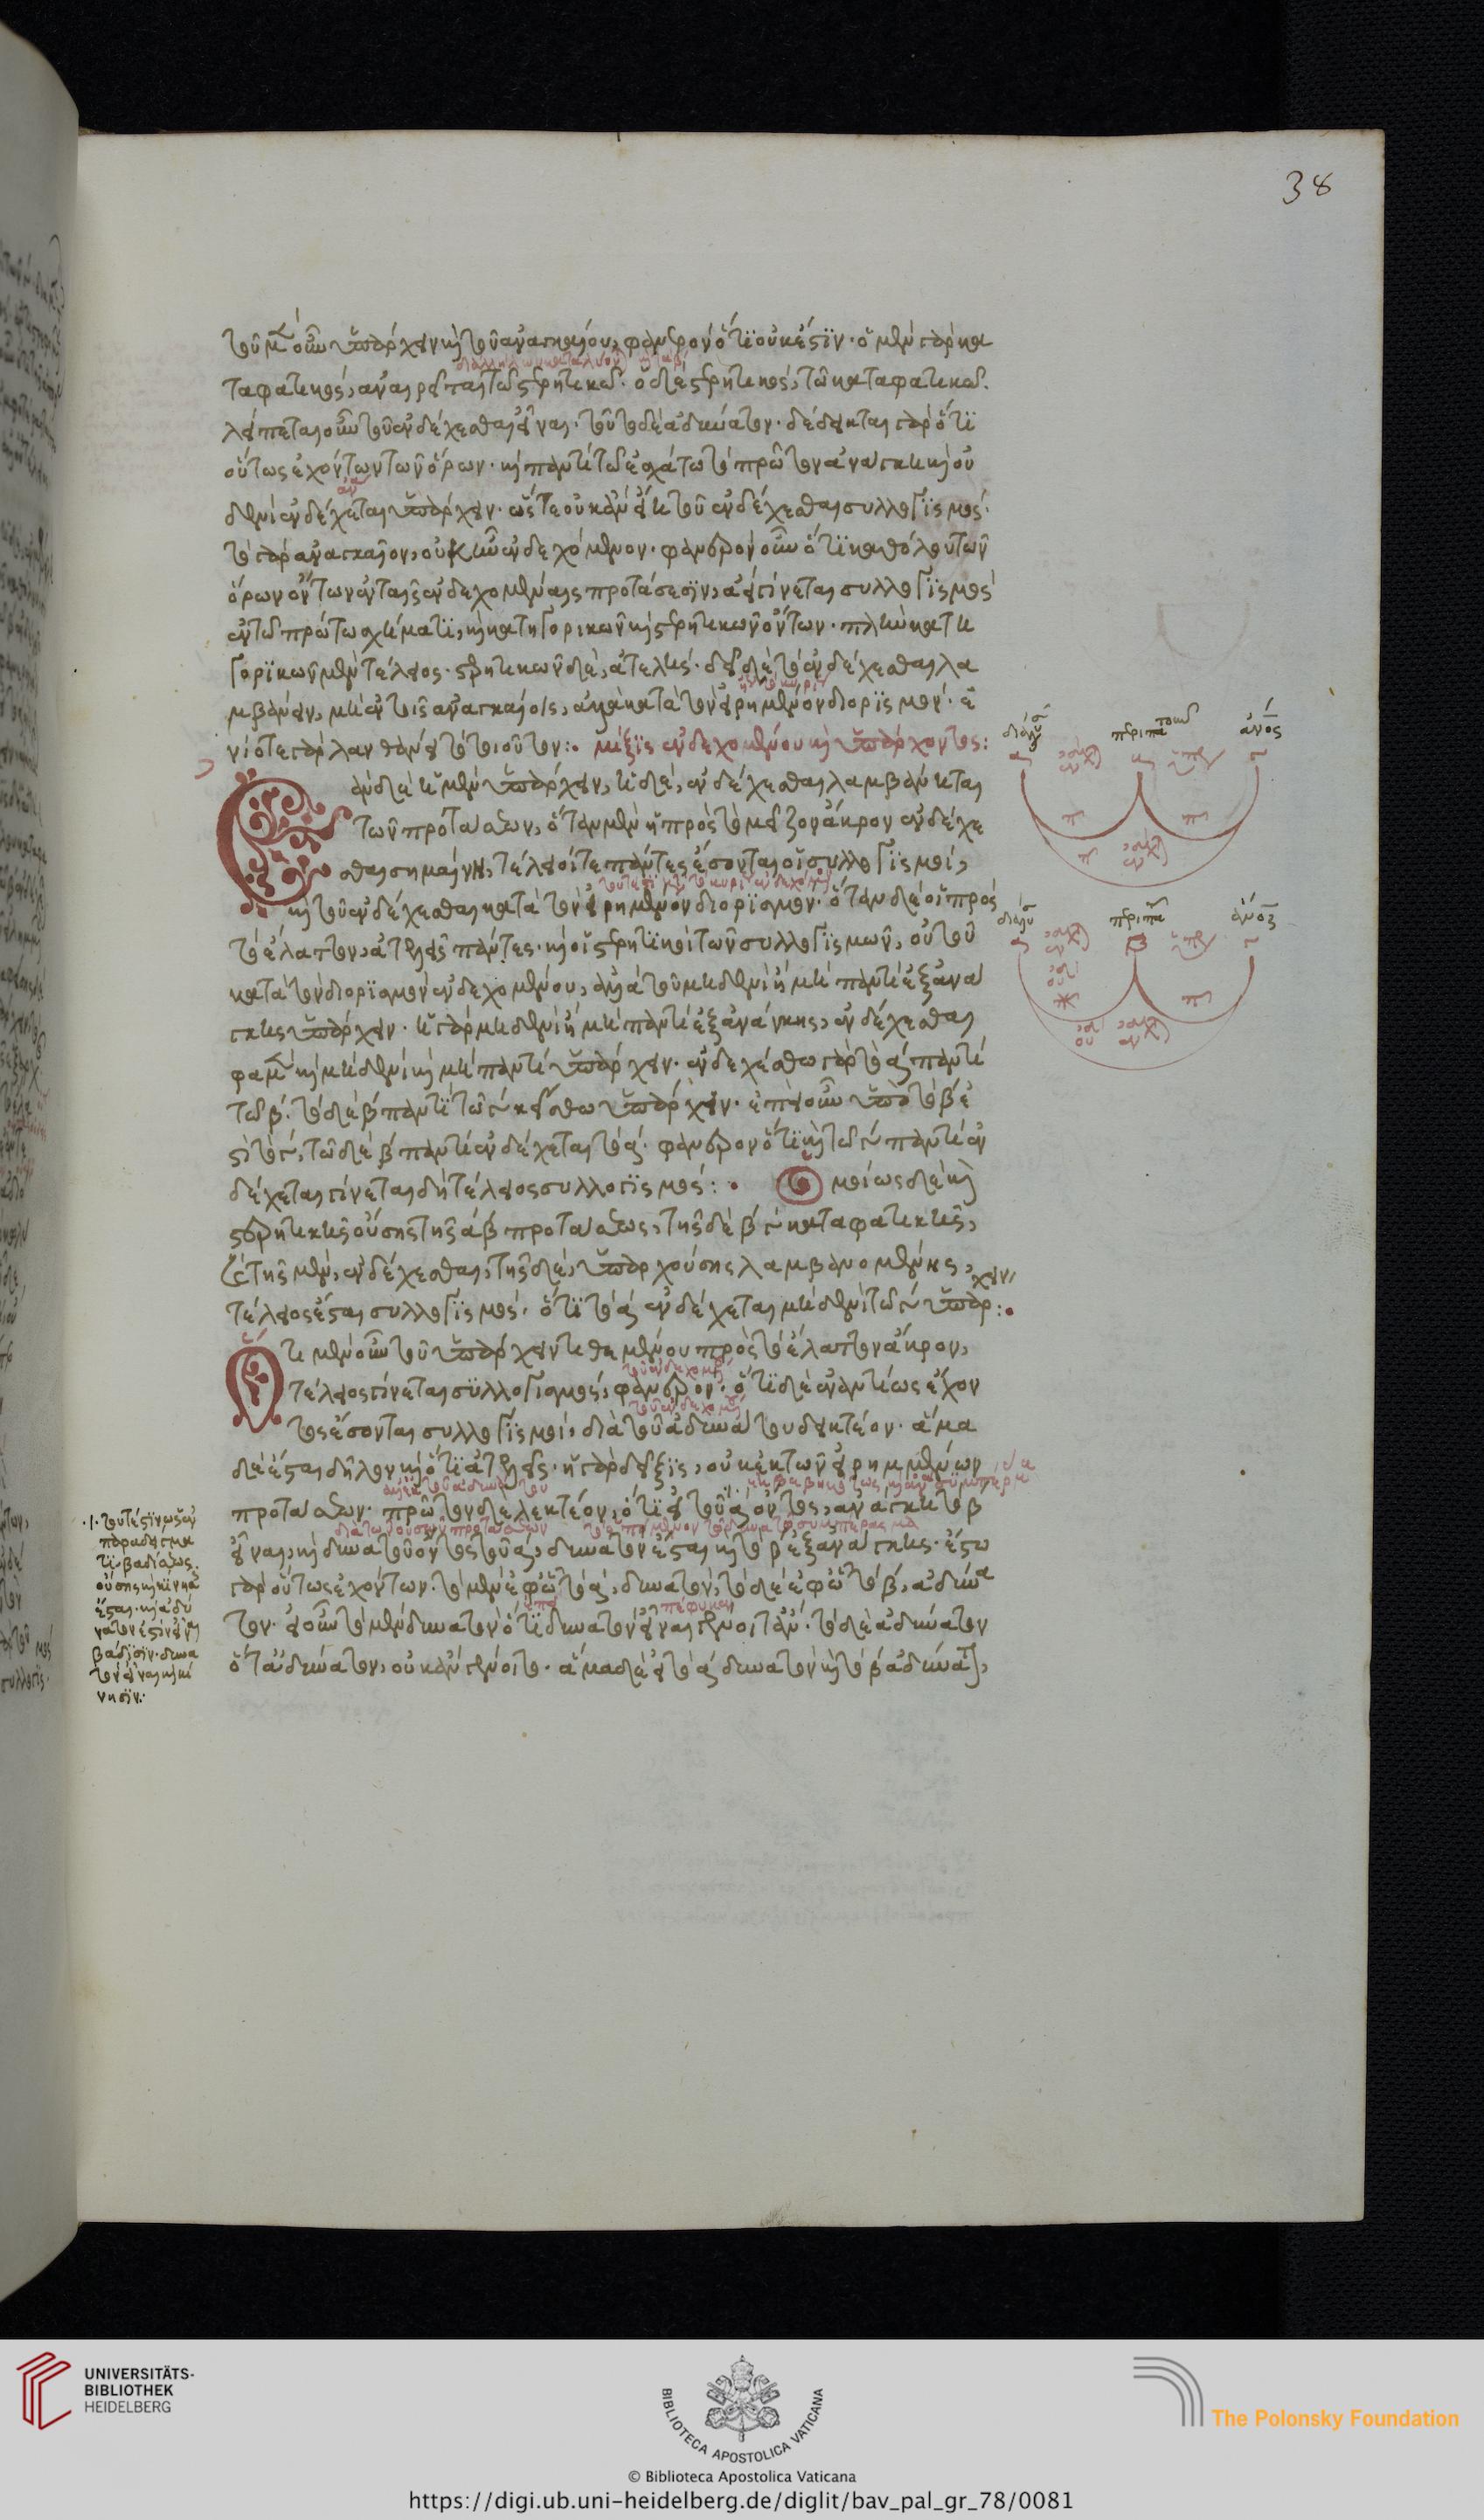 τοῦ μὲν οὖν ὑπάρχειν καὶ τοῦ ἀναγκαίου, φανερὸν ὅτι οὐκ ἔστιν· ὁ μὲν γὰρ κα
ταφατικός, ἀναιρεῖται τῷ στερητικῷ· ὁ δὲ στερητικός, τῷ καταφατικῷ·
λείπεται οὖν τοῦ ἐνδέχεσθαι εἶναι· τοῦτο δὲ ἀδύνατον· δέδεικται γὰρ ὅτι
οὕτως ἐχόντων τῶν ὅρων· καὶ παντὶ τῷ ἐσχάτω τὸ πρῶτον ἀνάγκη καὶ οὐ
δενὶ ἐνδέχεται ὑπάρχειν· ὥστε οὐκ ἂν εἴη τοῦ ἐνδέχεσθαι συλλογισμός·
τὸ γὰρ ἀναγκαῖον, οὐκ ἦν ἐνδεχόμενον· φανερὸν οὖν ὅτι καθόλου τῶν
ὅρων ὄντων ἐν ταῖς ἐνδεχομέναις προτάσεσιν, ἀεὶ γίνεται συλλογισμὸς
ἐν τῷ πρώτω σχήματι, καὶ κατηγορικῶν καὶ στερητικῶν ὄντων· πλὴν κατη
γορικῶν μὲν τέλειος· στερητικῶν δὲ, ἀτελής· δεῖ δὲ τὸ ἐνδέχεσθαι λα
μβάνειν, μὴ ἐν τοῖς ἀναγκαίοις, ἀλλὰ κατὰ τὸν εἰρημένον διορισμόν· ἐ
νίοτε γὰρ λανθάνει τὸ τοιοῦτον:· μίξις ἐνδεχομένου καὶ ὑπάρχοντος:
Ἐὰν δὲ ἡ μὲν ὑπάρχειν, ἡ δὲ, ἐνδέχεσθαι λαμβάνηται
τῶν προτάσεων, ὅταν μὲν ἡ πρὸς τὸ μεῖζον ἄκρον ἐνδέχε
σθαι σημαίνη, τέλειοί τε πάντες ἔσονται οἱ συλλογισμοί,
καὶ τοῦ ἐνδέχεσθαι κατὰ τὸν εἰρημένον διορισμόν· ὅταν δὲ ἡ πρὸς
τὸ ἔλαττον, ἀτελεῖς πάντες· καὶ οἱ στερητικοὶ τῶν συλλογισμῶν, οὐ τοῦ
κατὰ τὸν διορισμὸν ἐνδεχομένου, ἀλλὰ τοῦ μηδενὶ ἢ μὴ παντὶ ἐξ ἀνά
γκης ὑπάρχειν· εἰ γὰρ μηδενὶ ἢ μὴ παντὶ ἐξ ἀνάγκης, ἐνδέχεσθαι
φαμὲν καὶ μηδενὶ καὶ μὴ παντὶ ὑπάρχειν· ἐνδεχέσθω γὰρ τὸ α παντὶ
τῷ β· τὸ δὲ β παντὶ τῷ γ κείσθω ὑπάρχειν· ἐπεὶ οὖν ὑπὸ τὸ β ἐ
στὶ τὸ γ, τῷ δὲ β παντὶ ἐνδέχεται τὸ α· φανερὸν ὅτι καὶ τῷ γ παντὶ ἐν
δέχεται γίνεται δὴ τέλειος συλλογισμός:· Ὁμοίως δὲ καὶ
στερητικῆς οὔσης τῆς α β προτάσεως, τῆς δὲ β γ καταφατικῆς,
καὶ τῆς μὲν, ἐνδέχεσθαι, τῆς δὲ, ὑπάρχουσης λαμβανομένης,
τέλειος ἔσται συλλογισμός· ὅτι τὸ α ἐνδέχεται μηδενὶ τῷ γ ὑπάρχειν:·
Ὅτι μὲν οὖν τοῦ ὑπάρχειν τιθεμένου πρὸς τὸ ἔλαττον ἄκρον,
τέλειος γίνεται συλλογισμός, φανερόν· ὅτι δὲ ἐναντίως ἔχον
τος ἔσονται συλλογισμοί, διὰ τοῦ ἀδυνάτου δεικτέον· ἅμα
δὲ ἔσται δῆλον καὶ ὅτι ἀτελεῖς· ἡ γὰρ δεῖξις, οὐκ ἐκ τῶν εἰρημμένων
προτάσεων· πρῶτον δὲ λεκτέον, ὅτι εἰ τοῦ α ὄντος, ἀνάγκη τὸ β
εἶναι, καὶ δυνατοῦ ὄντος τοῦ α, δυνατὸν ἔσται καὶ τὸ β ἐξ ἀνάγκης· ἔστω
γὰρ οὕτως ἐχόντων· τὸ μὲν ἐφ' ᾧ τὸ α, δυνατόν, τὸ δὲ ἐφ' ᾧ τὸ β, ἀδύνα
τον· εἰ οὖν τὸ μὲν δυνατὸν ὅτι δυνατὸν εἶναι γένοιτ' ἄν· τὸ δὲ ἀδύνατον
ὅτ' ἀδύνατον, οὐκ ἂν γένοιτο· ἅμα δὲ εἰ τὸ α δυνατὸν καὶ τὸ β ἀδύνατον,
τουτέστιν ὡς ἐν
παραδείγμα
τι· βαδίσεως
οὔσης καὶ κίνησις
ἔσται· καὶ δυ
νατόν ἐστιν εἶναι
βάδισιν· δυνα
τὸν εἶναι καὶ κί
νησιν·
38
UNIVERSITÄTS-
BIBLIOTHEK
HEIDELBERG
BIBLIOTECA APOSTOLICA VATICANA
© Biblioteca Apostolica Vaticana
The Polonsky Foundation
https://digi.ub.uni-heidelberg.de/diglit/bav_pal_gr_78/0081